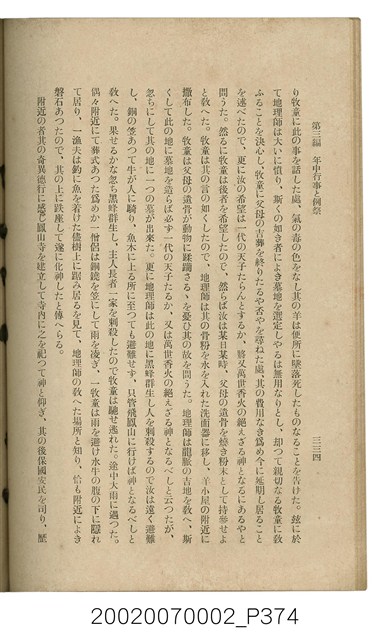 第三編　年中行事と例祭
三三四
り牧童に此の事を話した處、氣の毒の色をなし其の羊は便所に墜落死したものなることを告げた。玆に於
て地理師は大いに憤り、斯くの如き者により墓地を選定しやるは無用なりとし、却つて親切なる牧童に敎
ふることを決心し、牧童に父母の吉葬を終りたるや否やを尋ねた處、其の費用なき爲め今に延期し居ること
を述べたので、更に汝の希望は一代の天子たらんとするか、將又萬世香火の絕えざる神となるにあるやと
問うた。然るに牧童は後者を希望したので、然らば汝は某日某時、父母の遺骨を燒き粉末として持參せよ
と敎へた。牧童は其の言の如くしたので、地理師は其の骨粉を水を入れた洗面器に移し、羊小屋の附近に
撒布した。牧童は父母の遺骨が動物に蹂躪さるゝを憂ひ其の故を問うた。地理師は龍脈の吉地を敎へ、斯
くして此の地に墓地を造らば必ず一代の天子たるか、又は萬世香火の絕えざる神となるべしと云つたが、
忽ちにして其の地に一つの墓が出來た。更に地理師は此の地に黑蜂群生し人を刺殺するので汝は遠く避難
し、銅の笠あつて牛が人に騎り、魚木に上る所に至つても避難せず、只管飛鳳山に行けば神となるべしと
敎へた。果せるかな忽ち黑蜂群生し、主人長者一家を刺殺したので牧童は馳せ逃れた。途中大雨に遇つた。
偶々附近にて葬式あつた爲めか一僧侶は銅鏡を笠にして雨を凌ぎ、一牧童は雨を避け水牛の腹の下に隱れ
て居り、一漁夫は釣に魚を着けた儘樹上に踞み居るを見て、地理師の敎へた場所と知り、恰も附近によき
磐石あつたので、其の上に趺座して遂に化神したと傳へらる。
附近の者其の奇異德行に感じ鳳山寺を建立して寺內に之を祀つて神と仰ぎ、其の後保國安民を司り、歷
20020070002_P374